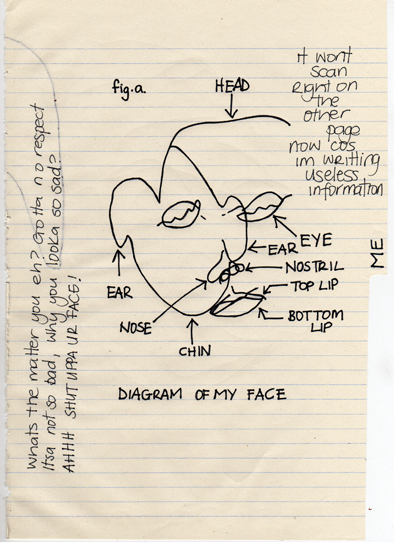 it wont
scan
right on
the
other
page
now cos
im writting
useless
information
fig.a.
HEAD
EYE
EAR
NOSTRIL
TOP LIP
BOTTOM
LIP
EAR
NOSE
CHIN
ME
DIAGRAM OF MY FACE
Whats the matter you eh? Gotta no respect
Itsa not so bad, why you looka so sad?
AHHH SHUTUPPA UR FACE!